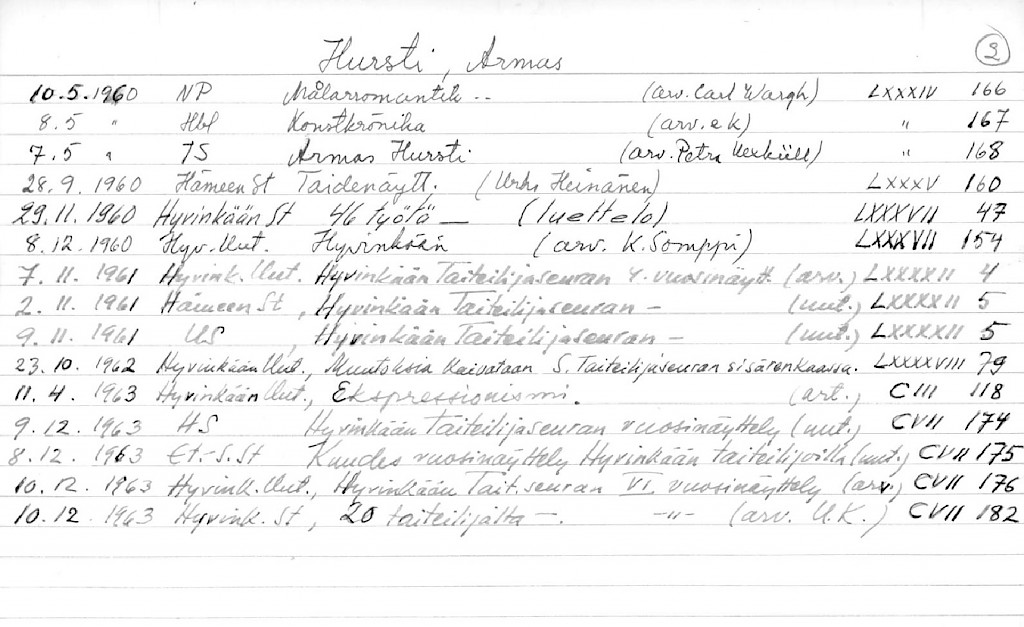 Hursti, Armas 2
10.5.1960 NP Målarromantik -- (arv. Carl Wargh) LXXXIV 166
8.5 " Hbl Konstkrönika (arv. e k) " 167
7.5 " TS Armas Hursti (arv. Petra Uexküll) " 168
28.9.1960 Hämeen St Taidenäytt. (Urho Heinänen) LXXXV 160
29.11.1960 Hyvinkään St 46 työtä — (luettelo) LXXXVII 47
8.12.1960 Hyv. Uut. Hyvinkään (arv. K. Somppi) LXXXVII 154
7.11.1961 Hyvink. Uut. Hyvinkään Taiteilijaseuran 4. vuosinäytt. (arv.) LXXXXII 4
2.11.1961 Hämeen St, Hyvinkään Taiteilijaseuran — (uut.) LXXXXII 5
9.11.1961 US , Hyvinkään Taiteilijaseuran — (uut.) LXXXXII 5
23.10.1962 Hyvinkään Uut., Muutoksia kaivataan S. Taiteilijaseuran sisärenkaassa. LXXXXVIII 79
11.4.1963 Hyvinkään Uut., Ekspressionismi. (art.) CIII 118
9.12.1963 HS Hyvinkään Taiteilijaseuran vuosinäyttely (uut.) CVII 174
8.12.1963 Et.-S.St Kuudes vuosinäyttely Hyvinkään taiteilijoilla (uut.) CVII 175
10.12.1963 Hyvink. Uut., Hyvinkään Tait.seuran VI. vuosinäyttely (arv.) CVII 176
10.12.1963 Hyvink. St, 20 taiteilijalta —. —"— (arv. U.K.) CVII 182